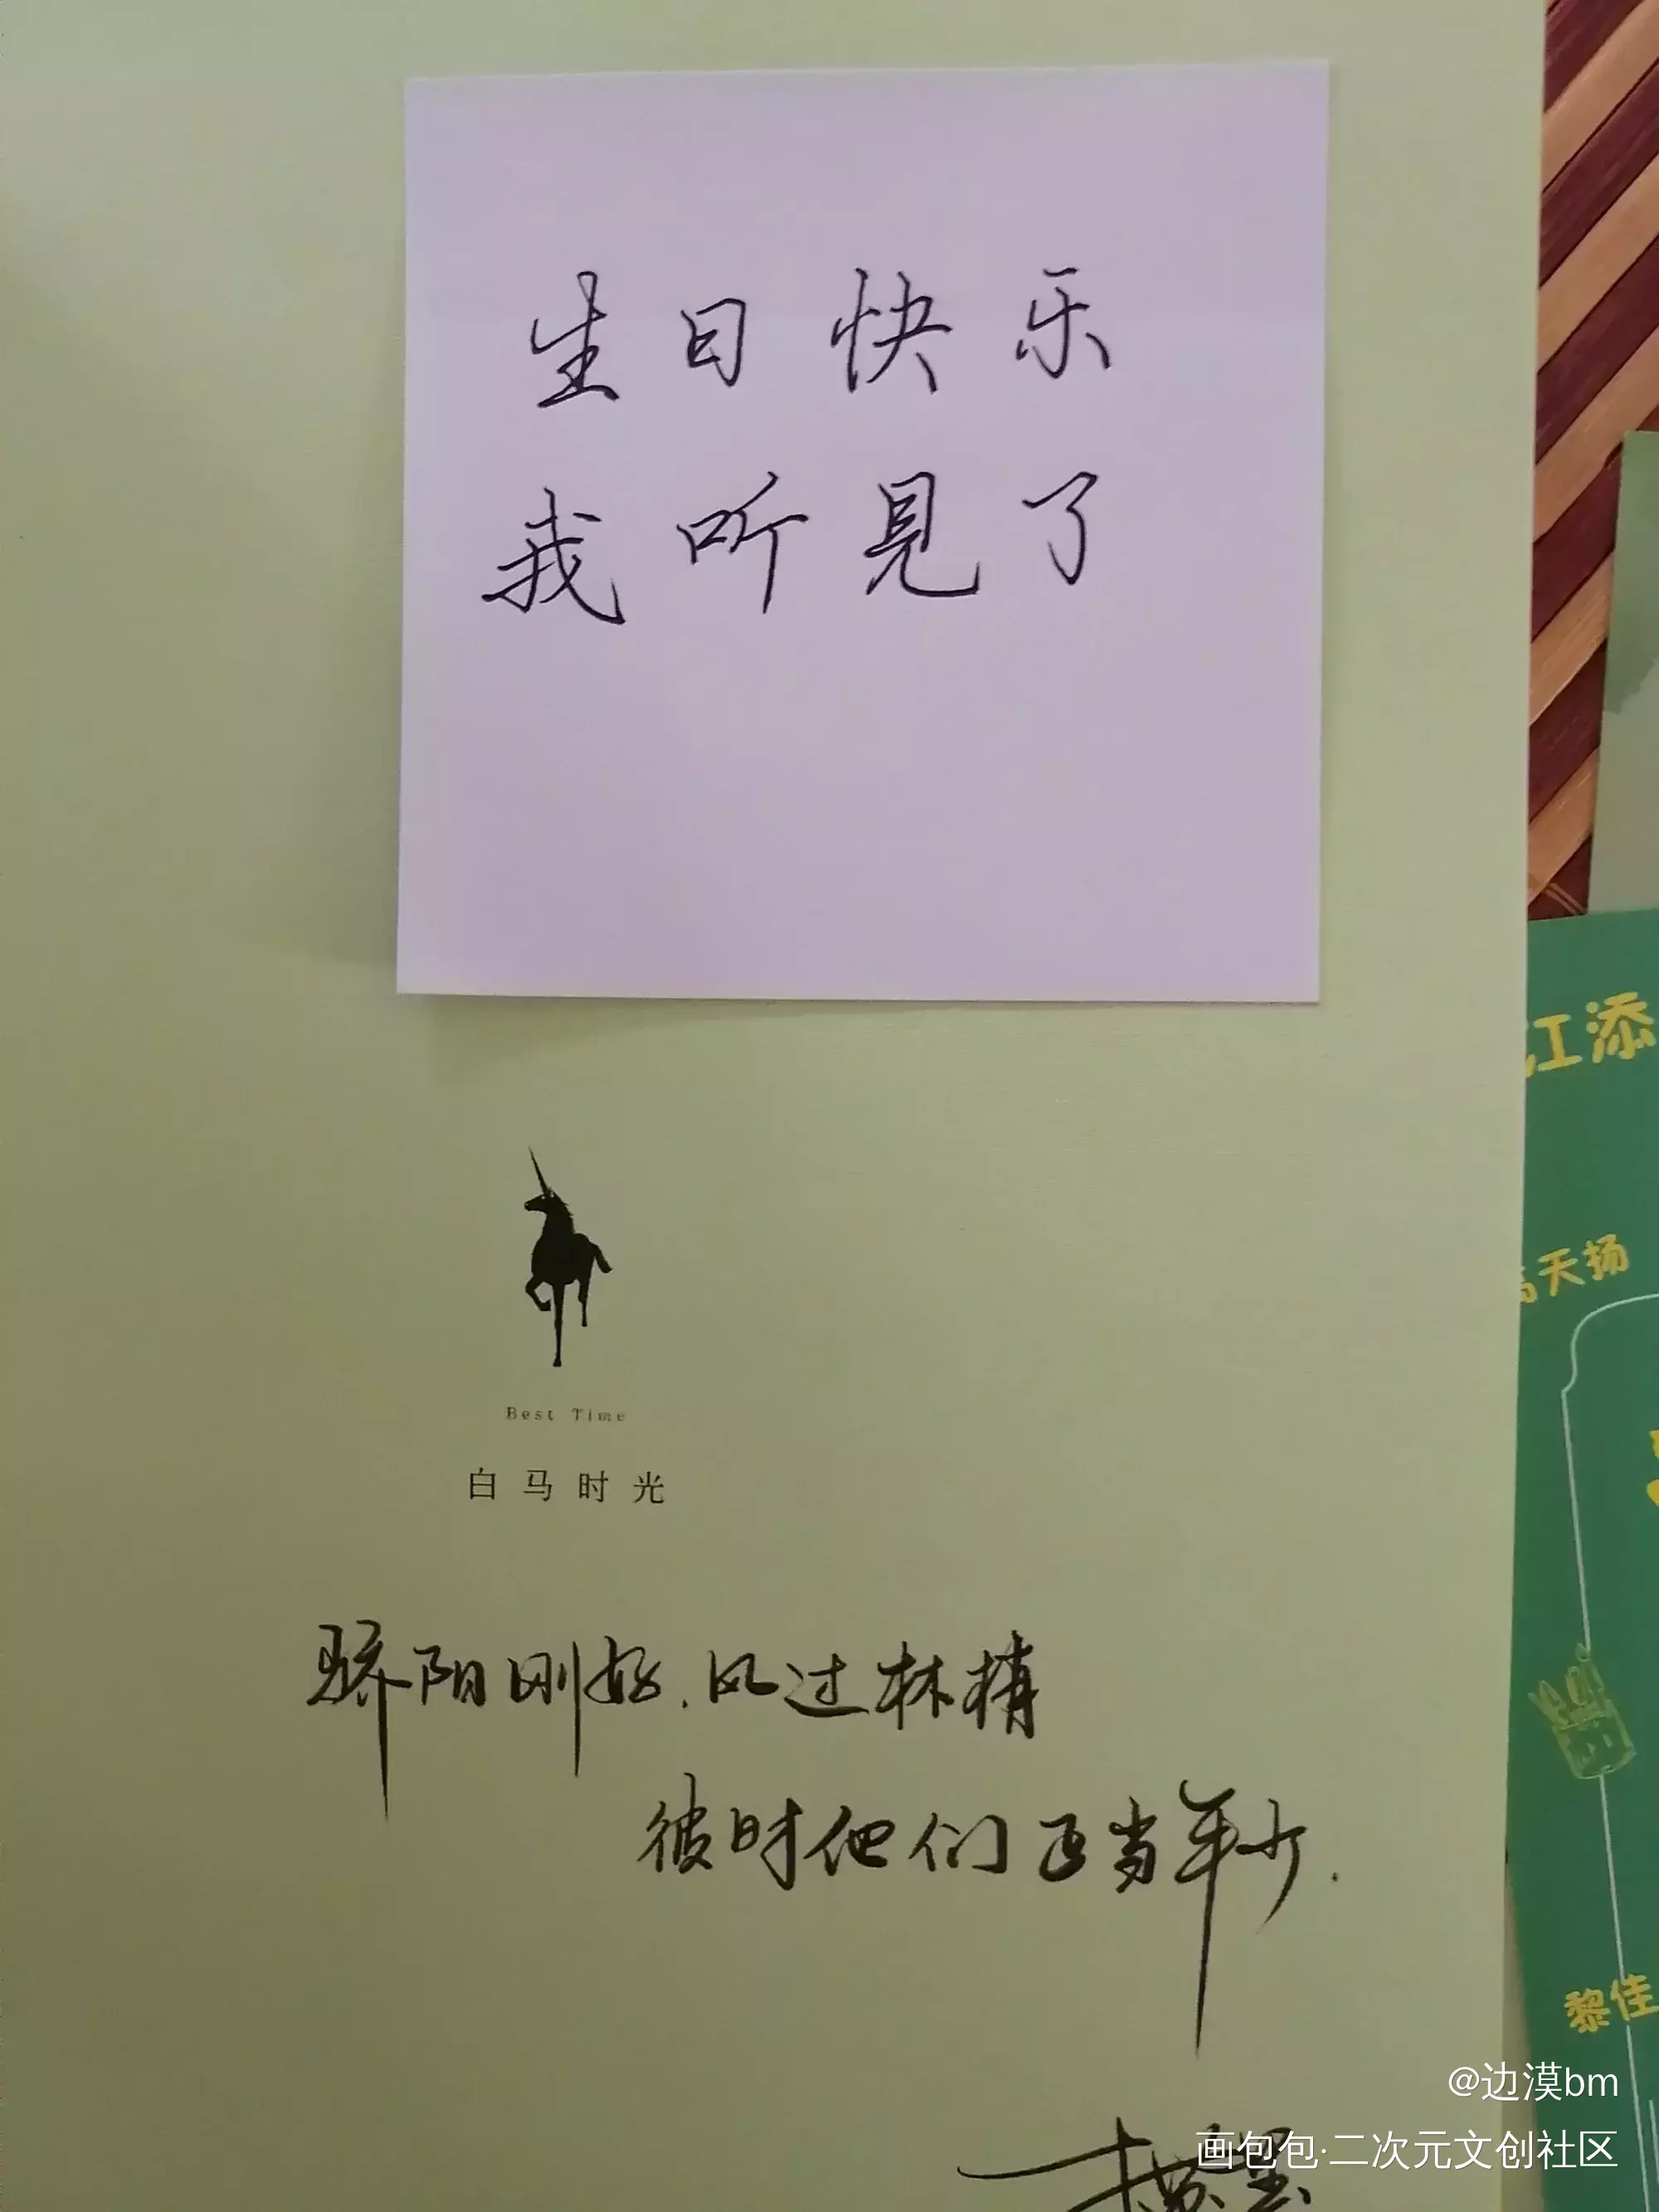 生日快乐
我听见了
江添
高天扬
Best Time
白马时光
骄阳刚好.风过林梢
彼时他们正当年少.
黎佳
@边漠bm
画包包·二次元文创社区